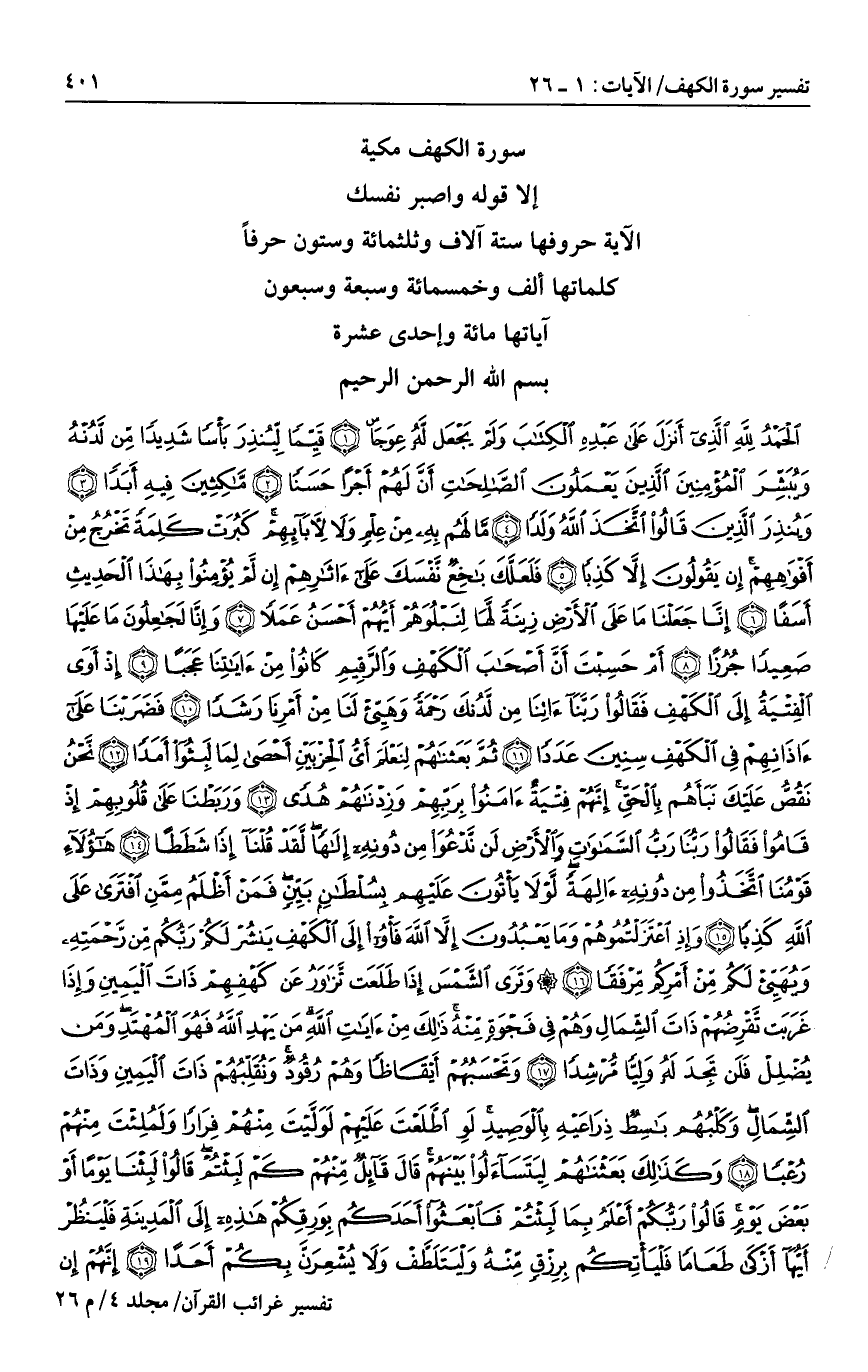 تفسير سورة الكهف/ الآيات: ١ - ٢٦
٤٠١
سورة الكهف مكية
إلا قوله واصبر نفسك
الآية حروفها ستة آلاف وثلثمائة وستون حرفاً
كلماتها ألف وخمسمائة وسبعة وسبعون
آياتها مائة وإحدى عشرة
بسم الله الرحمن الرحيم
ٱلْحَمْدُ لِلَّهِ ٱلَّذِىٓ أَنزَلَ عَلَىٰ عَبْدِهِ ٱلْكِتَٰبَ وَلَمْ يَجْعَل لَّهُۥ عِوَجَاۜ ﴿١﴾ قَيِّمًا لِّيُنذِرَ بَأْسًا شَدِيدًا مِّن لَّدُنْهُ
وَيُبَشِّرَ ٱلْمُؤْمِنِينَ ٱلَّذِينَ يَعْمَلُونَ ٱلصَّٰلِحَٰتِ أَنَّ لَهُمْ أَجْرًا حَسَنًا ﴿٢﴾ مَّٰكِثِينَ فِيهِ أَبَدًا ﴿٣﴾
وَيُنذِرَ ٱلَّذِينَ قَالُوا۟ ٱتَّخَذَ ٱللَّهُ وَلَدًا ﴿٤﴾ مَّا لَهُم بِهِۦ مِنْ عِلْمٍ وَلَا لِءَابَآئِهِمْ ۚ كَبُرَتْ كَلِمَةً تَخْرُجُ مِنْ
أَفْوَٰهِهِمْ ۚ إِن يَقُولُونَ إِلَّا كَذِبًا ﴿٥﴾ فَلَعَلَّكَ بَٰخِعٌ نَّفْسَكَ عَلَىٰٓ ءَاثَٰرِهِمْ إِن لَّمْ يُؤْمِنُوا۟ بِهَٰذَا ٱلْحَدِيثِ
أَسَفًا ﴿٦﴾ إِنَّا جَعَلْنَا مَا عَلَى ٱلْأَرْضِ زِينَةً لَّهَا لِنَبْلُوَهُمْ أَيُّهُمْ أَحْسَنُ عَمَلًا ﴿٧﴾ وَإِنَّا لَجَٰعِلُونَ مَا عَلَيْهَا
صَعِيدًا جُرُزًا ﴿٨﴾ أَمْ حَسِبْتَ أَنَّ أَصْحَٰبَ ٱلْكَهْفِ وَٱلرَّقِيمِ كَانُوا۟ مِنْ ءَايَٰتِنَا عَجَبًا ﴿٩﴾ إِذْ أَوَى
ٱلْفِتْيَةُ إِلَى ٱلْكَهْفِ فَقَالُوا۟ رَبَّنَآ ءَاتِنَا مِن لَّدُنكَ رَحْمَةً وَهَيِّئْ لَنَا مِنْ أَمْرِنَا رَشَدًا ﴿١٠﴾ فَضَرَبْنَا عَلَىٰٓ
ءَاذَانِهِمْ فِى ٱلْكَهْفِ سِنِينَ عَدَدًا ﴿١١﴾ ثُمَّ بَعَثْنَٰهُمْ لِنَعْلَمَ أَىُّ ٱلْحِزْبَيْنِ أَحْصَىٰ لِمَا لَبِثُوٓا۟ أَمَدًا ﴿١٢﴾ نَّحْنُ
نَقُصُّ عَلَيْكَ نَبَأَهُم بِٱلْحَقِّ ۚ إِنَّهُمْ فِتْيَةٌ ءَامَنُوا۟ بِرَبِّهِمْ وَزِدْنَٰهُمْ هُدًى ﴿١٣﴾ وَرَبَطْنَا عَلَىٰ قُلُوبِهِمْ إِذْ
قَامُوا۟ فَقَالُوا۟ رَبُّنَا رَبُّ ٱلسَّمَٰوَٰتِ وَٱلْأَرْضِ لَن نَّدْعُوَا۟ مِن دُونِهِۦٓ إِلَٰهًا ۖ لَّقَدْ قُلْنَآ إِذًا شَطَطًا ﴿١٤﴾ هَٰٓؤُلَآءِ
قَوْمُنَا ٱتَّخَذُوا۟ مِن دُونِهِۦٓ ءَالِهَةً ۖ لَّوْلَا يَأْتُونَ عَلَيْهِم بِسُلْطَٰنٍۭ بَيِّنٍ ۖ فَمَنْ أَظْلَمُ مِمَّنِ ٱفْتَرَىٰ عَلَى
ٱللَّهِ كَذِبًا ﴿١٥﴾ وَإِذِ ٱعْتَزَلْتُمُوهُمْ وَمَا يَعْبُدُونَ إِلَّا ٱللَّهَ فَأْوُۥٓا۟ إِلَى ٱلْكَهْفِ يَنشُرْ لَكُمْ رَبُّكُم مِّن رَّحْمَتِهِۦ
وَيُهَيِّئْ لَكُم مِّنْ أَمْرِكُم مِّرْفَقًا ﴿١٦﴾ ۞ وَتَرَى ٱلشَّمْسَ إِذَا طَلَعَت تَّزَٰوَرُ عَن كَهْفِهِمْ ذَاتَ ٱلْيَمِينِ وَإِذَا
غَرَبَت تَّقْرِضُهُمْ ذَاتَ ٱلشِّمَالِ وَهُمْ فِى فَجْوَةٍ مِّنْهُ ۚ ذَٰلِكَ مِنْ ءَايَٰتِ ٱللَّهِ ۗ مَن يَهْدِ ٱللَّهُ فَهُوَ ٱلْمُهْتَدِ ۖ وَمَن
يُضْلِلْ فَلَن تَجِدَ لَهُۥ وَلِيًّا مُّرْشِدًا ﴿١٧﴾ وَتَحْسَبُهُمْ أَيْقَاظًا وَهُمْ رُقُودٌ ۚ وَنُقَلِّبُهُمْ ذَاتَ ٱلْيَمِينِ وَذَاتَ
ٱلشِّمَالِ ۖ وَكَلْبُهُم بَٰسِطٌ ذِرَاعَيْهِ بِٱلْوَصِيدِ ۚ لَوِ ٱطَّلَعْتَ عَلَيْهِمْ لَوَلَّيْتَ مِنْهُمْ فِرَارًا وَلَمُلِئْتَ مِنْهُمْ
رُعْبًا ﴿١٨﴾ وَكَذَٰلِكَ بَعَثْنَٰهُمْ لِيَتَسَآءَلُوا۟ بَيْنَهُمْ ۚ قَالَ قَآئِلٌ مِّنْهُمْ كَمْ لَبِثْتُمْ ۖ قَالُوا۟ لَبِثْنَا يَوْمًا أَوْ
بَعْضَ يَوْمٍ ۚ قَالُوا۟ رَبُّكُمْ أَعْلَمُ بِمَا لَبِثْتُمْ فَٱبْعَثُوٓا۟ أَحَدَكُم بِوَرِقِكُمْ هَٰذِهِۦٓ إِلَى ٱلْمَدِينَةِ فَلْيَنظُرْ
أَيُّهَآ أَزْكَىٰ طَعَامًا فَلْيَأْتِكُم بِرِزْقٍ مِّنْهُ وَلْيَتَلَطَّفْ وَلَا يُشْعِرَنَّ بِكُمْ أَحَدًا ﴿١٩﴾ إِنَّهُمْ إِن
تفسير غرائب القرآن/ مجلد ٤/ م ٢٦